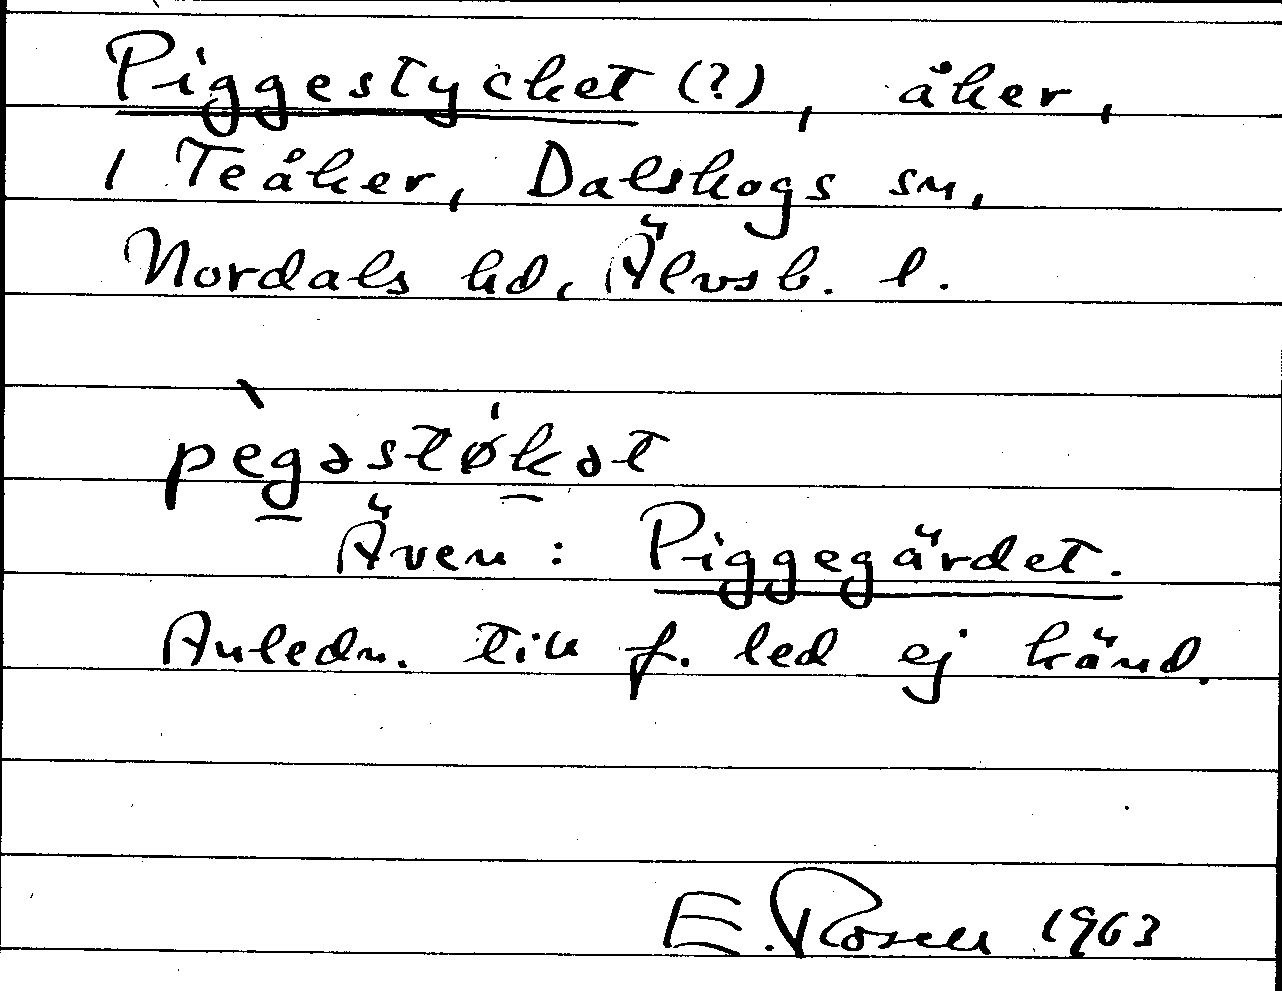 Piggestycket (?), åker,
1 Teåker, Dalskogs sn,
Nordals hd, Älvsb. l.
pègəstøkət
Även: Piggegärdet.
Anledn. till f. led ej känd.
E. Rosell 1963